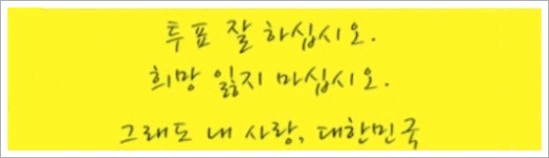 투표 잘 하십시오.
희망 잃지 마십시오.
그래도 내 사랑, 대한민국